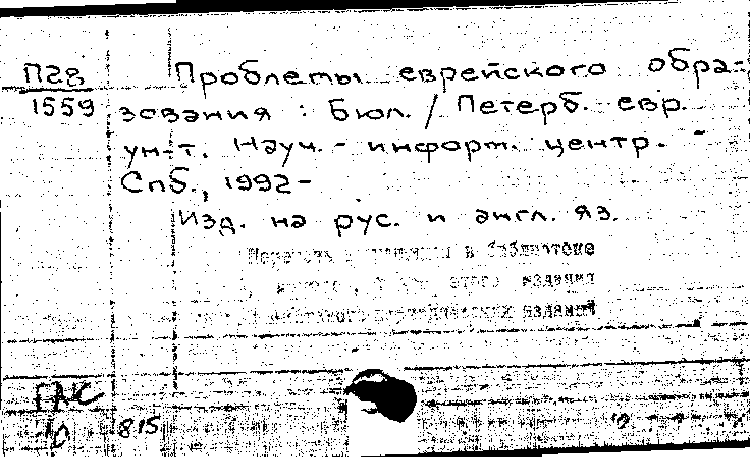 П28
1559
Проблемы еврейского обра-
зования : Бюл. / Петерб. евр.
ун-т. Науч.-информ. центр. -
Спб., 1992-
Изд. на рус. и англ. яз.
в библиотеке
этого издания
изданий
815